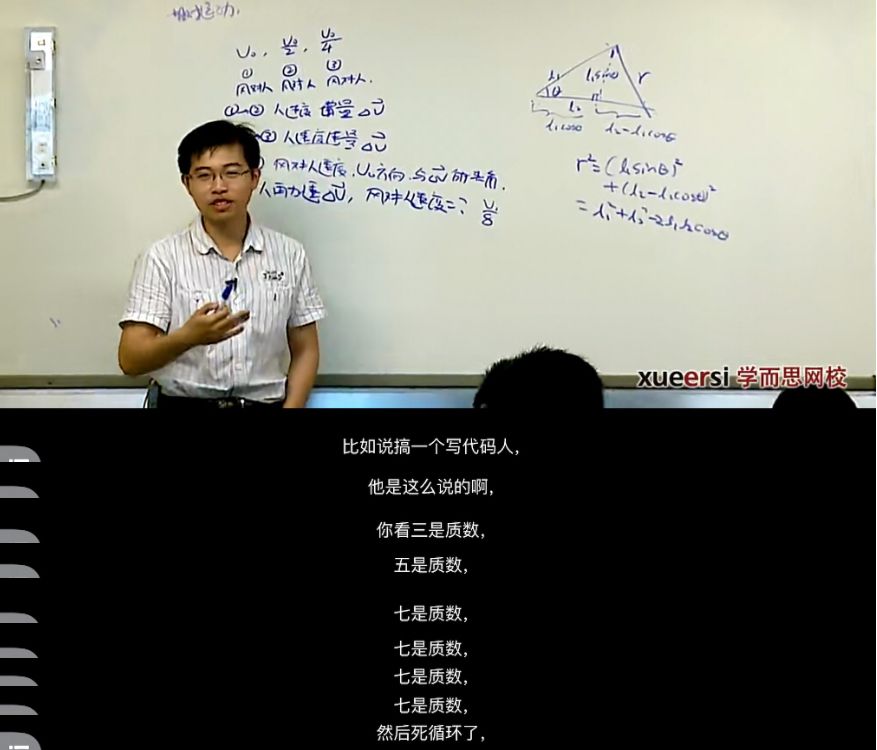 相对运动.
υ₀, υ₀/2, υ₀/4
① ② ③
风对人 风对人 风对人.
①→② 人速度增量 Δv⃗
② 人速度增量 Δv⃗
风对人速度, υ₀方向与Δv⃗的夹角.
人再加速Δv⃗, 风对人速度=?
l₁ l₁sinθ r
θ
l₂
l₁cosθ l₂-l₁cosθ
r²=(l₁sinθ)²
+(l₂-l₁cosθ)²
=l₁²+l₂²-2l₁l₂cosθ
xueersi 学而思网校
比如说搞一个写代码人，
他是这么说的啊，
你看三是质数，
五是质数，
七是质数，
七是质数，
七是质数，
七是质数，
然后死循环了，